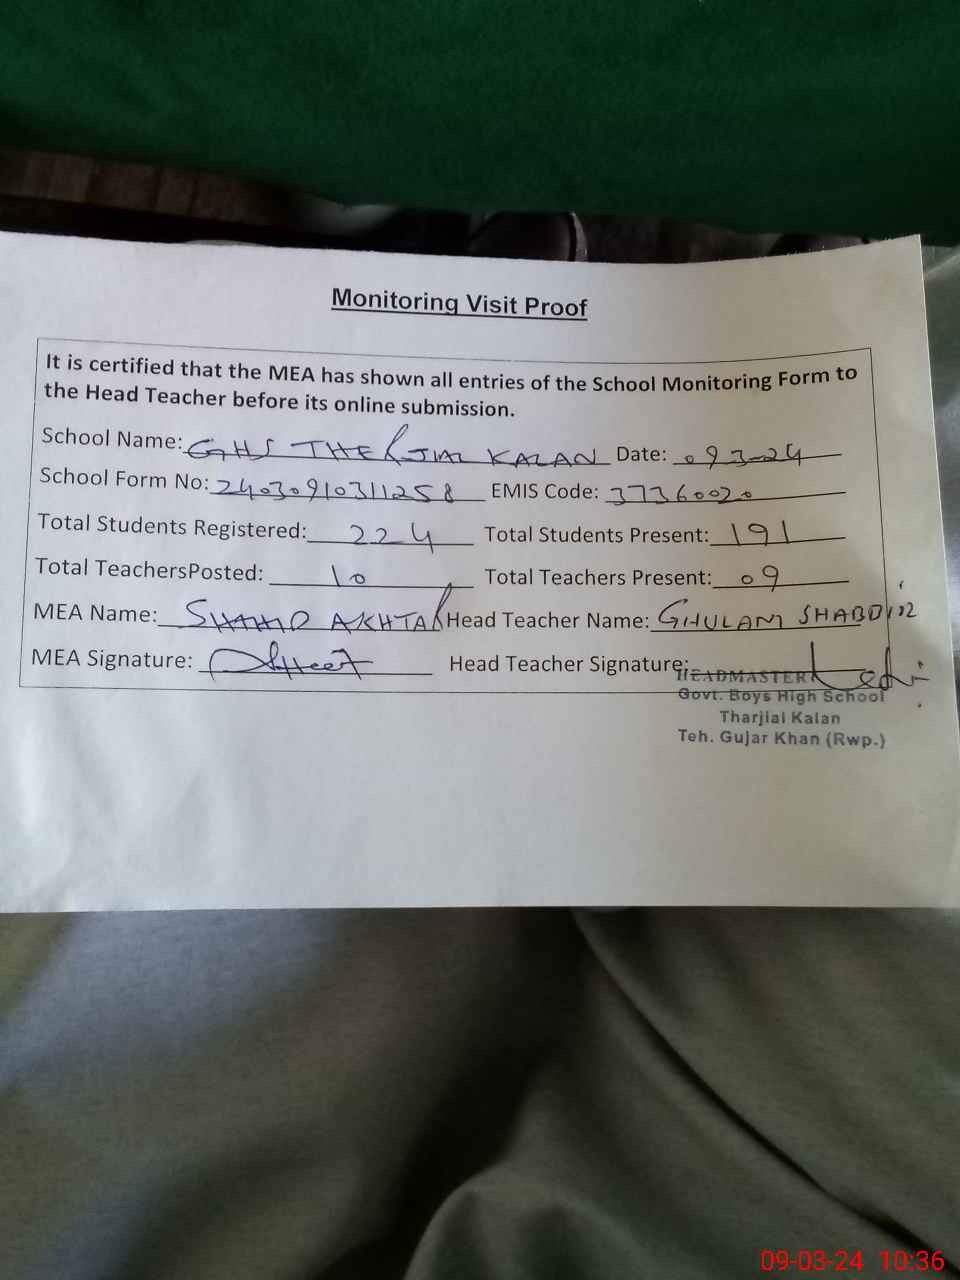 Monitoring Visit Proof
It is certified that the MEA has shown all entries of the School Monitoring Form to
the Head Teacher before its online submission.
School Name: GHS THERJIAL KALAN Date: 09 3-24
School Form No: 24030910311258 EMIS Code: 37360020
Total Students Registered: 224 Total Students Present: 191
Total TeachersPosted: 10 Total Teachers Present: 09
MEA Name: SHAHID AKHTAR Head Teacher Name: GHULAM SHABBIR
MEA Signature: Head Teacher Signature:
HEADMASTER
Govt. Boys High School
Tharjial Kalan
Teh. Gujar Khan (Rwp.)
09-03-24 10:36